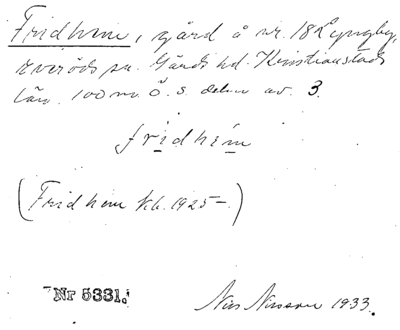 Fridhem, gård å nr. 18 Lyngby,
Everöds sn. Gärds hd. Kristianstads
län. 100 m. Ö. s. delen av 3.
fridhem
(Fridhem kb. 1925–)
Nr 5331. Nils Nilsson 1933.